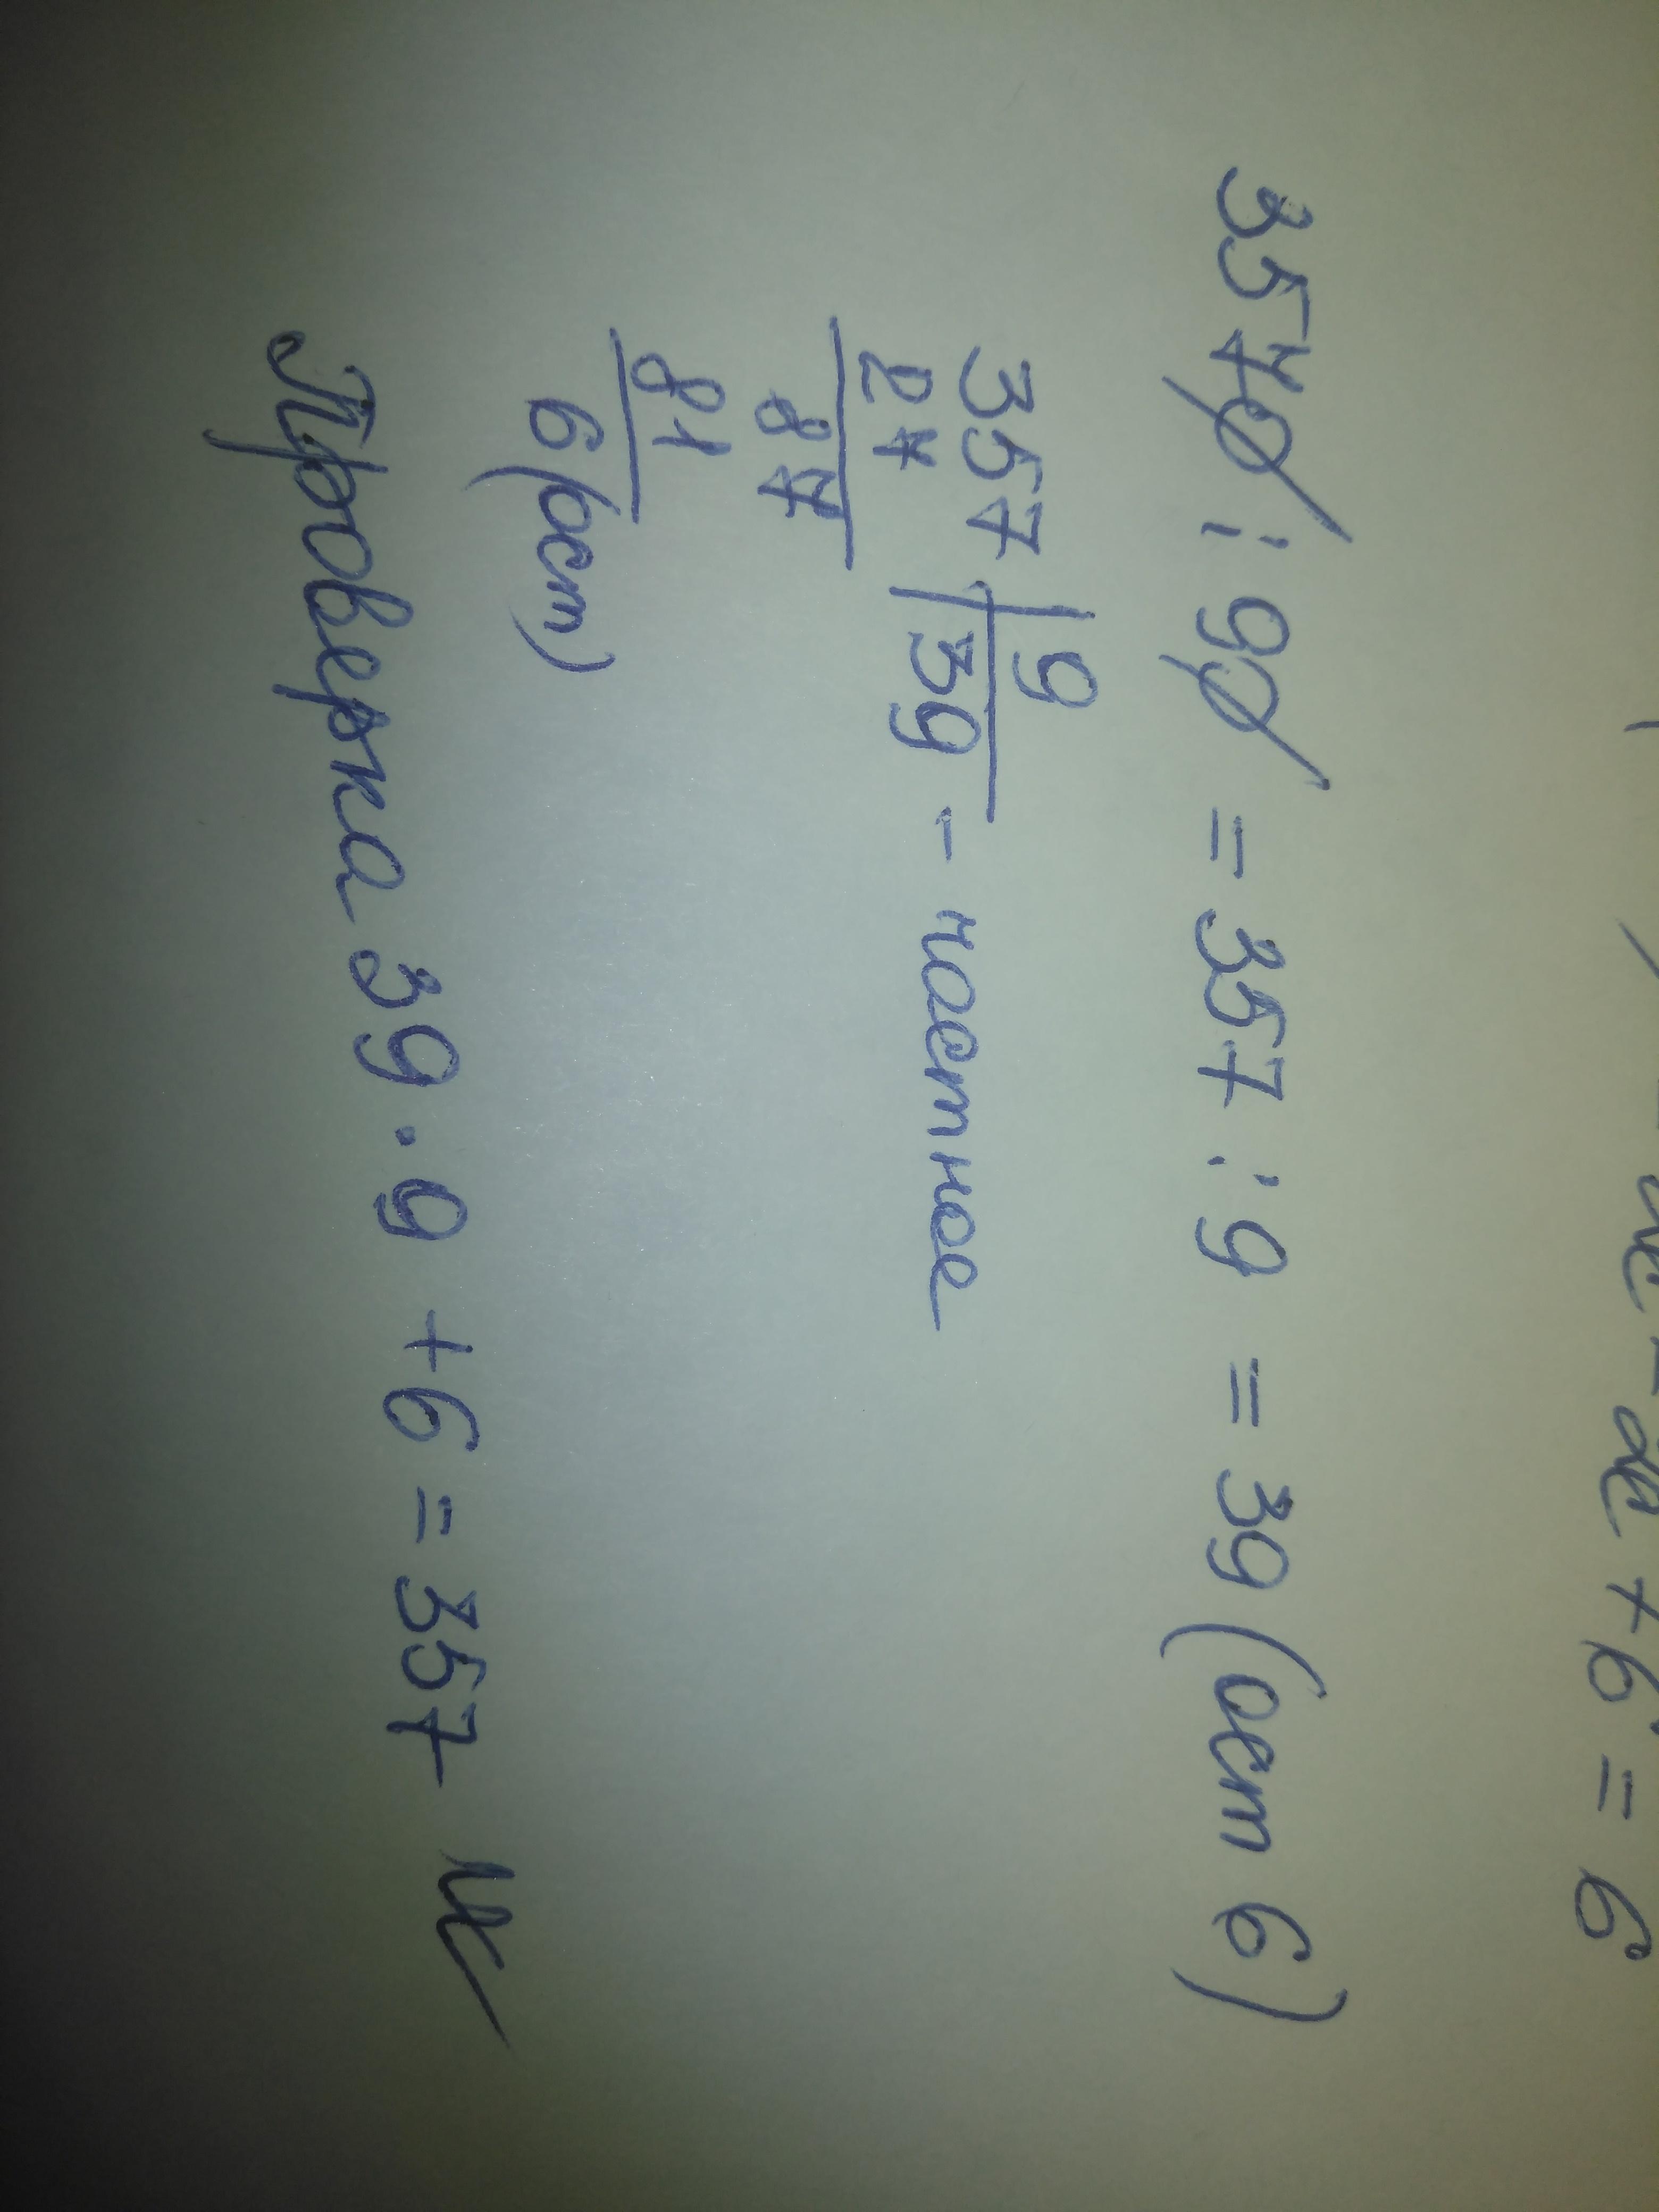 +6 = 6
3570 : 90 = 357 : 9 = 39 (ост 6)
357 | 9
27 | 39 - частное
87
81
6 (ост)
Проверка 39 · 9 + 6 = 357 и